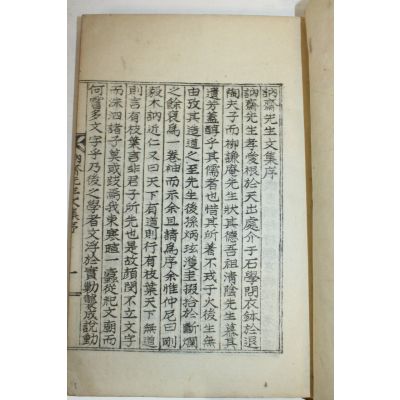 訥齋先生文集序
訥齋先生孝愛根於天出處介于石學問衣鉢於退
陶夫子而柳謙庵先生狀其德吾祖清陰先生慕其
遺芳蓋醇乎其儒者也惜其所著不戒于火後生無
由攷其造道之至先生後孫炳玹濩圭掇拾於斷爛
之餘裒爲一卷紬而示余且請爲序余雅仲尼曰剛
毅木訥近仁又曰天下有道則行有枝葉天下無道
則言有枝葉言非君子所先也是故顏閔不立文字
而洙泗諸子莫或跂焉我東寒暄一蠹從祀文廟而
何嘗多文字乎乃後之學者文浮於實動輒成說動
訥齋先生文集序 一